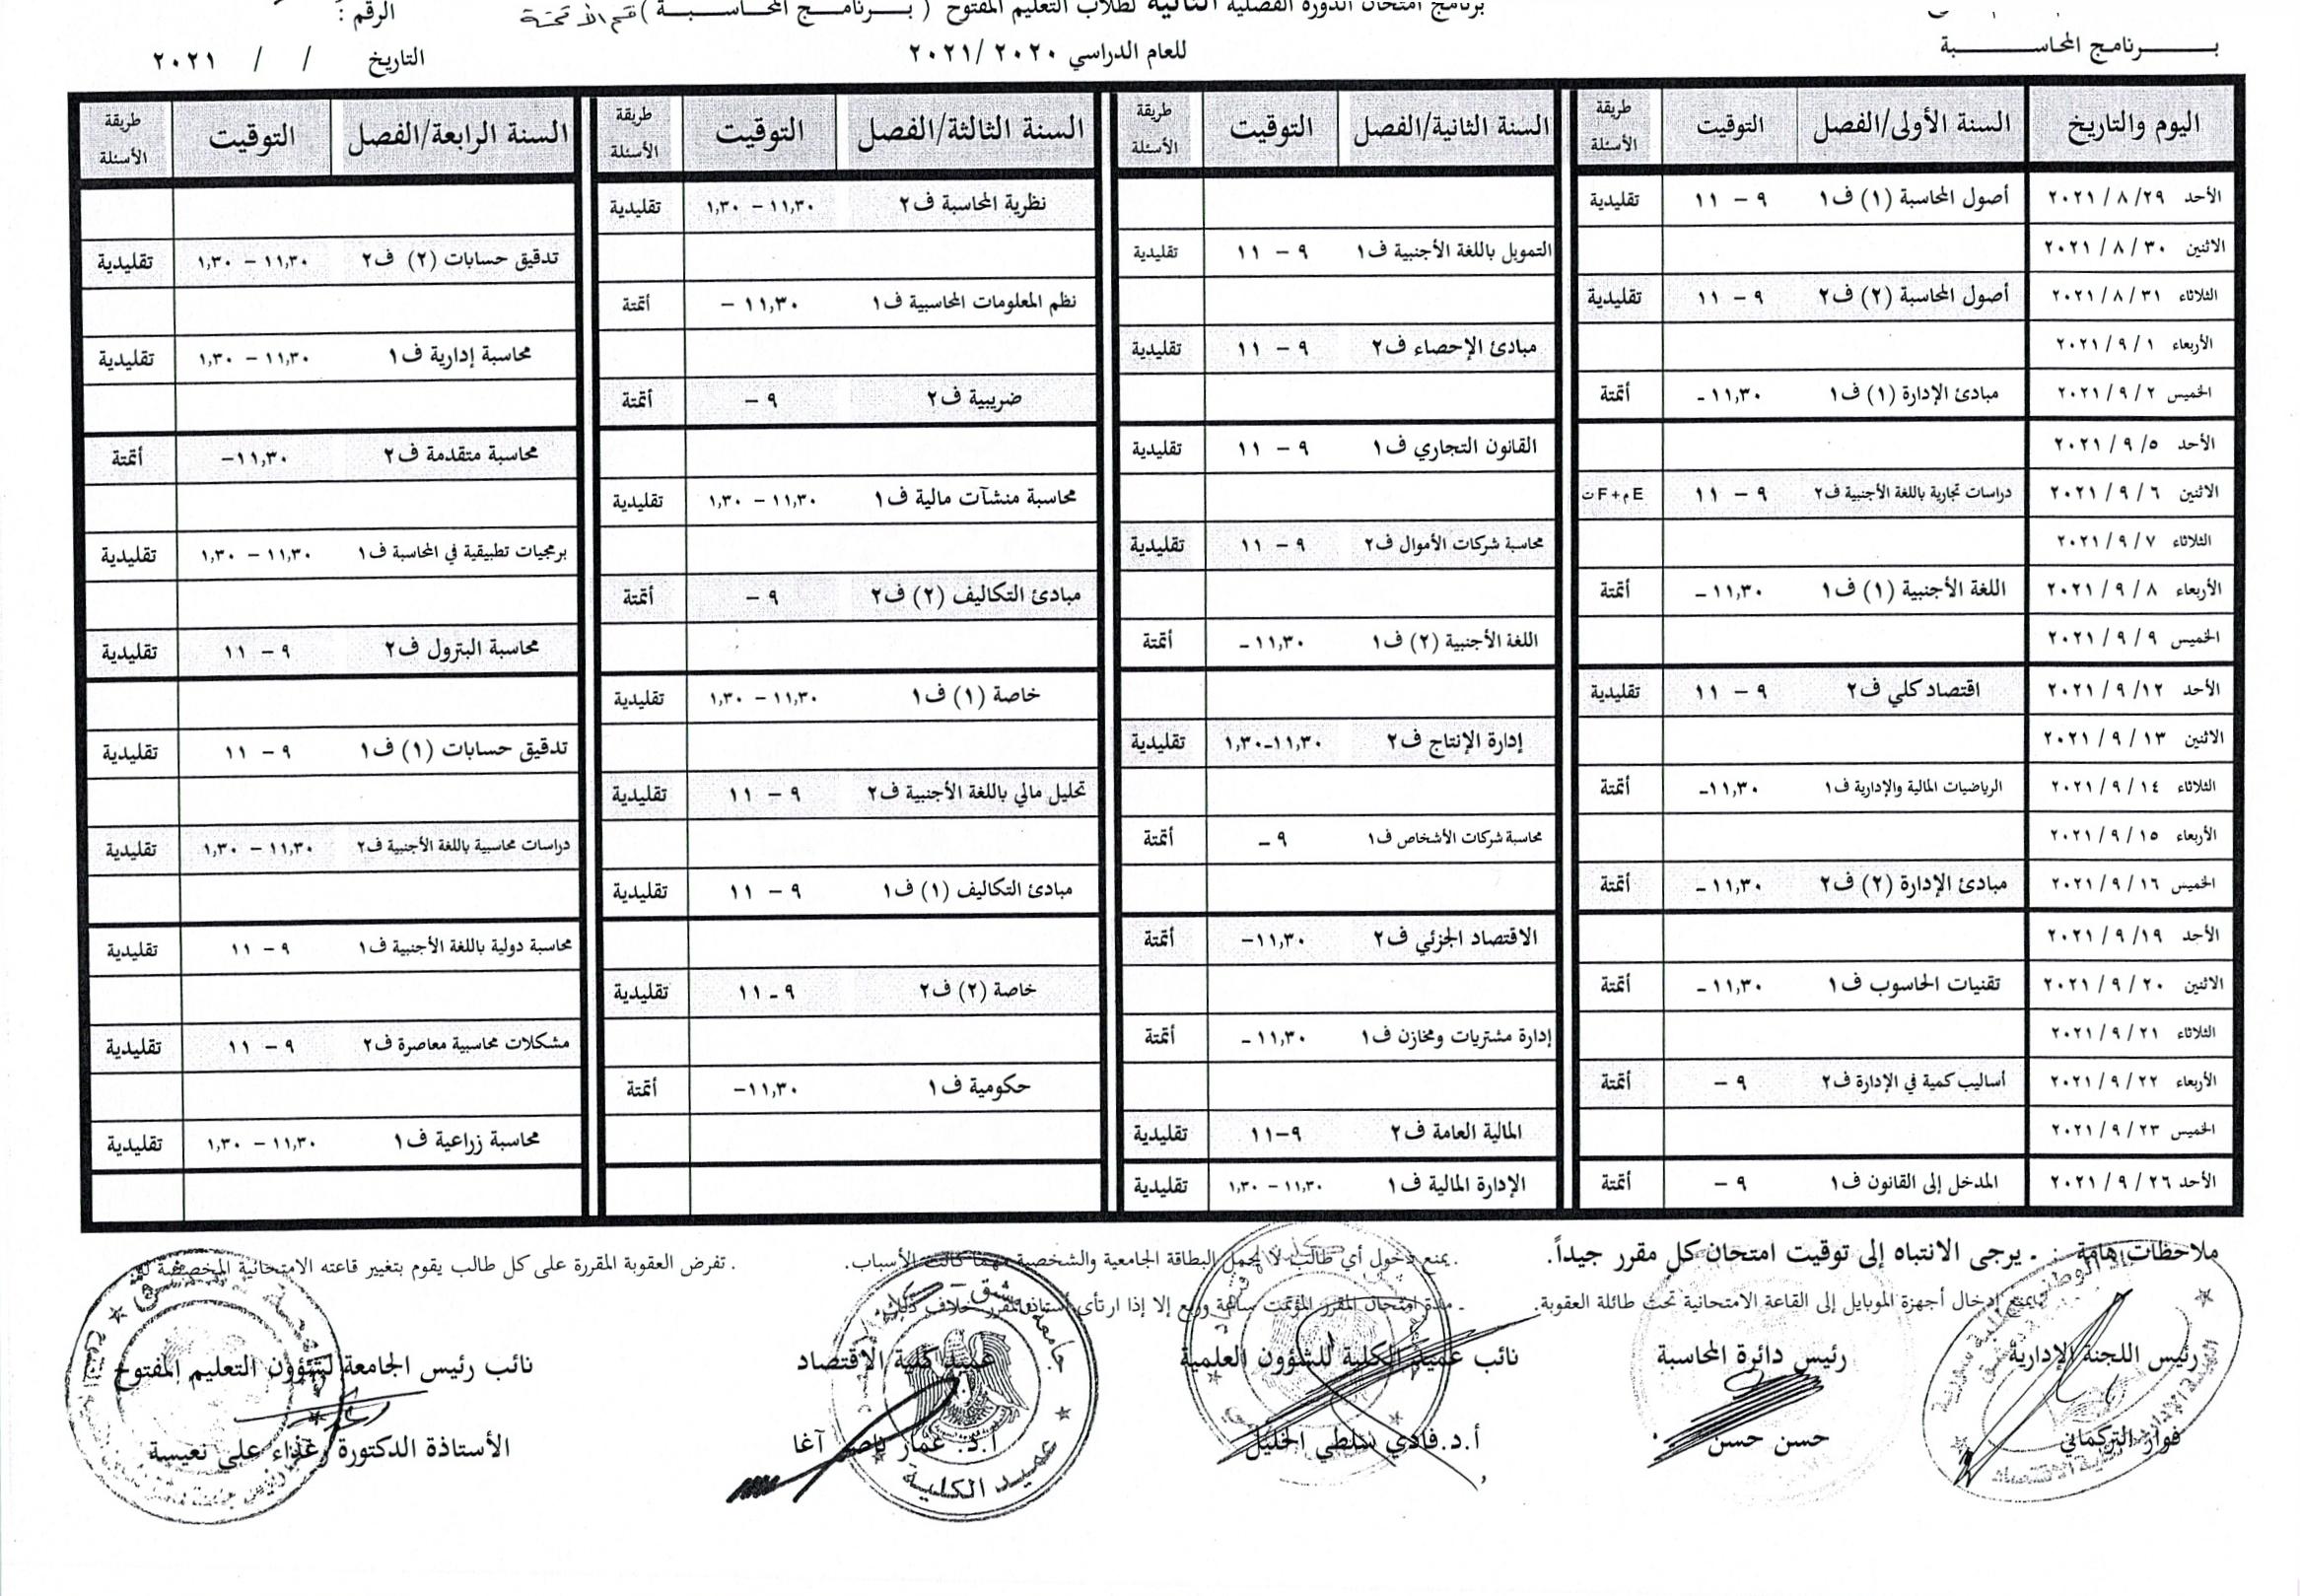 برنامج امتحان الدورة الفصلية الثانية لطلاب التعليم المفتوح ( بـرنـامـج المحـاسـبـة ) قسم الأتمتة
الرقم :
بـرنامـج المحاسـبـة
للعام الدراسي ٢٠٢٠ /٢٠٢١
التاريخ / / ٢٠٢١
اليوم والتاريخ السنة الأولى/الفصل التوقيت طريقة الأسئلة السنة الثانية/الفصل التوقيت طريقة الأسئلة السنة الثالثة/الفصل التوقيت طريقة الأسئلة السنة الرابعة/الفصل التوقيت طريقة الأسئلة
الأحد ٢٠٢١ / ٨ /٢٩ أصول المحاسبة (١) ف١ ٩ – ١١ تقليدية نظرية المحاسبة ف٢ ١١,٣٠ – ١,٣٠ تقليدية
الاثنين ٢٠٢١ / ٨ / ٣٠ التمويل باللغة الأجنبية ف١ ٩ – ١١ تقليدية تدقيق حسابات (٢) ف٢ ١١,٣٠ – ١,٣٠ تقليدية
الثلاثاء ٢٠٢١ / ٨ / ٣١ أصول المحاسبة (٢) ف٢ ٩ – ١١ تقليدية نظم المعلومات المحاسبية ف١ ١١,٣٠ – أتمتة
الأربعاء ٢٠٢١ / ٩ / ١ مبادئ الإحصاء ف٢ ٩ – ١١ تقليدية محاسبة إدارية ف١ ١١,٣٠ – ١,٣٠ تقليدية
الخميس ٢٠٢١ / ٩ / ٢ مبادئ الإدارة (١) ف١ ١١,٣٠ - أتمتة ضريبية ف٢ ٩ – أتمتة
الأحد ٢٠٢١ / ٩ /٥ القانون التجاري ف١ ٩ – ١١ تقليدية محاسبة متقدمة ف٢ ١١,٣٠– أتمتة
الاثنين ٢٠٢١ / ٩ / ٦ دراسات تجارية باللغة الأجنبية ف٢ ٩ – ١١ E م + F ت محاسبة منشآت مالية ف١ ١١,٣٠ – ١,٣٠ تقليدية
الثلاثاء ٢٠٢١ / ٩ / ٧ محاسبة شركات الأموال ف٢ ٩ – ١١ تقليدية برمجيات تطبيقية في المحاسبة ف١ ١١,٣٠ – ١,٣٠ تقليدية
الأربعاء ٢٠٢١ / ٩ / ٨ اللغة الأجنبية (١) ف١ ١١,٣٠ – أتمتة مبادئ التكاليف (٢) ف٢ ٩ – أتمتة
الخميس ٢٠٢١ / ٩ / ٩ اللغة الأجنبية (٢) ف١ ١١,٣٠ – أتمتة محاسبة البترول ف٢ ٩ – ١١ تقليدية
الأحد ٢٠٢١ / ٩ /١٢ اقتصاد كلي ف٢ ٩ – ١١ تقليدية خاصة (١) ف١ ١١,٣٠ – ١,٣٠ تقليدية
الاثنين ٢٠٢١ / ٩ / ١٣ إدارة الإنتاج ف٢ ١١,٣٠–١,٣٠ تقليدية تدقيق حسابات (١) ف١ ٩ – ١١ تقليدية
الثلاثاء ٢٠٢١ / ٩ / ١٤ الرياضيات المالية والإدارية ف١ ١١,٣٠– أتمتة تحليل مالي باللغة الأجنبية ف٢ ٩ – ١١ تقليدية
الأربعاء ٢٠٢١ / ٩ / ١٥ محاسبة شركات الأشخاص ف١ ٩ – أتمتة دراسات محاسبية باللغة الأجنبية ف٢ ١١,٣٠ – ١,٣٠ تقليدية
الخميس ٢٠٢١ / ٩ / ١٦ مبادئ الإدارة (٢) ف٢ ١١,٣٠ – أتمتة مبادئ التكاليف (١) ف١ ٩ – ١١ تقليدية
الأحد ٢٠٢١ / ٩ /١٩ الاقتصاد الجزئي ف٢ ١١,٣٠– أتمتة محاسبة دولية باللغة الأجنبية ف١ ٩ – ١١ تقليدية
الاثنين ٢٠٢١ / ٩ / ٢٠ تقنيات الحاسوب ف١ ١١,٣٠ – أتمتة خاصة (٢) ف٢ ٩ - ١١ تقليدية
الثلاثاء ٢٠٢١ / ٩ / ٢١ إدارة مشتريات ومخازن ف١ ١١,٣٠ – أتمتة مشكلات محاسبية معاصرة ف٢ ٩ – ١١ تقليدية
الأربعاء ٢٠٢١ / ٩ / ٢٢ أساليب كمية في الإدارة ف٢ ٩ – أتمتة حكومية ف١ ١١,٣٠– أتمتة
الخميس ٢٠٢١ / ٩ / ٢٣ المالية العامة ف٢ ٩–١١ تقليدية محاسبة زراعية ف١ ١١,٣٠ – ١,٣٠ تقليدية
الأحد ٢٠٢١ / ٩ / ٢٦ المدخل إلى القانون ف١ ٩ – أتمتة الإدارة المالية ف١ ١١,٣٠ – ١,٣٠ تقليدية
ملاحظات هامة : - يرجى الانتباه إلى توقيت امتحان كل مقرر جيداً. . يمنع دخول أي طالب لا يحمل البطاقة الجامعية والشخصية مهما كانت الأسباب. . تفرض العقوبة المقررة على كل طالب يقوم بتغيير قاعته الامتحانية المخصصة له.
- يمنع إدخال أجهزة الموبايل إلى القاعة الامتحانية تحت طائلة العقوبة. - مدة امتحان المقرر المؤتمت ساعة وربع إلا إذا ارتأى أستاذ المقرر خلاف ذلك.
رئيس اللجنة الإدارية رئيس دائرة المحاسبة نائب عميد الكلية للشؤون العلمية عميد كلية الاقتصاد نائب رئيس الجامعة لشؤون التعليم المفتوح
فواز التركماني حسن حسن أ.د.فادي سلطي الخليل أ.د. عمار ناصر آغا الأستاذة الدكتورة رغداء علي نعيسة
جامعة دمشق - كلية الاقتصاد
عميد الكلية